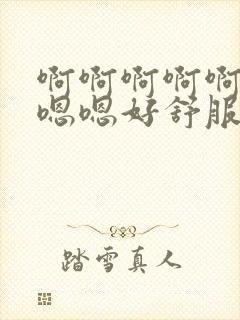 啊啊啊啊啊
嗯嗯好舒服
踏雪真人